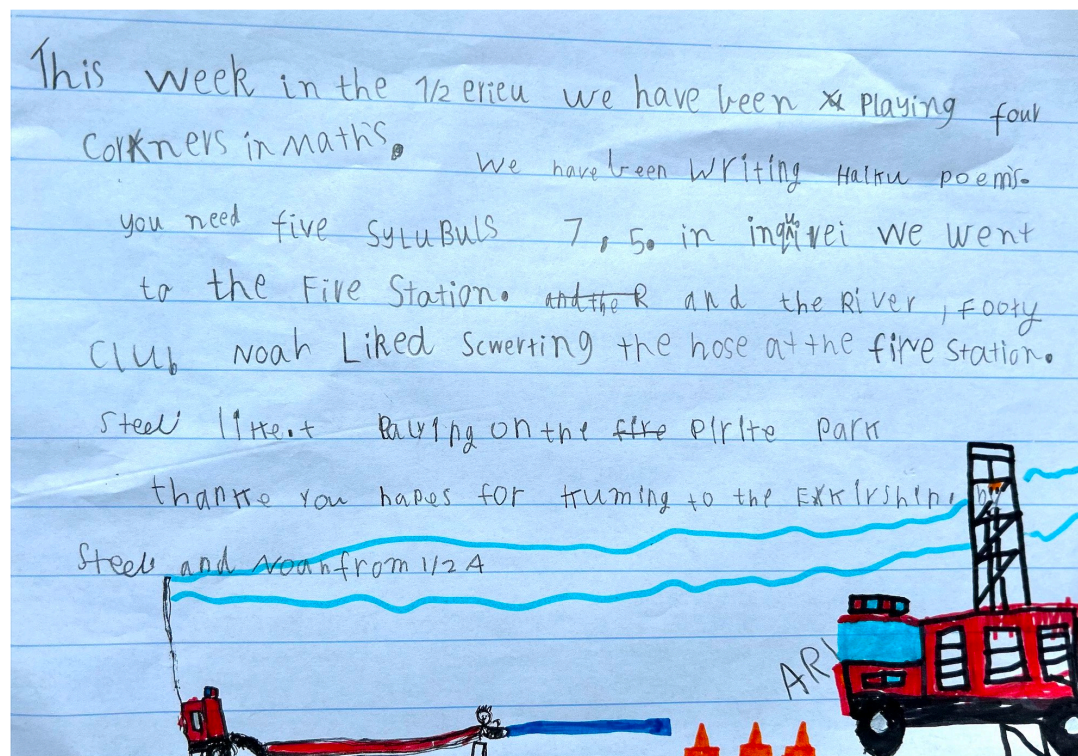 This week in the 1/2 erieu we have been playing four
Corkners in maths.
We have been writing Haiku poems.
you need five SyLuBuls 7, 5. in inquirei we went
to the Fire Station. and the R and the River, Footy
Club Noah Liked Scwerting the hose at the fire station.
Steel liket Palying on the fire Pirite Park
thanke you hapes for kuming to the Exkirshin. by
Steel and Noah from 1/2 A
ARI